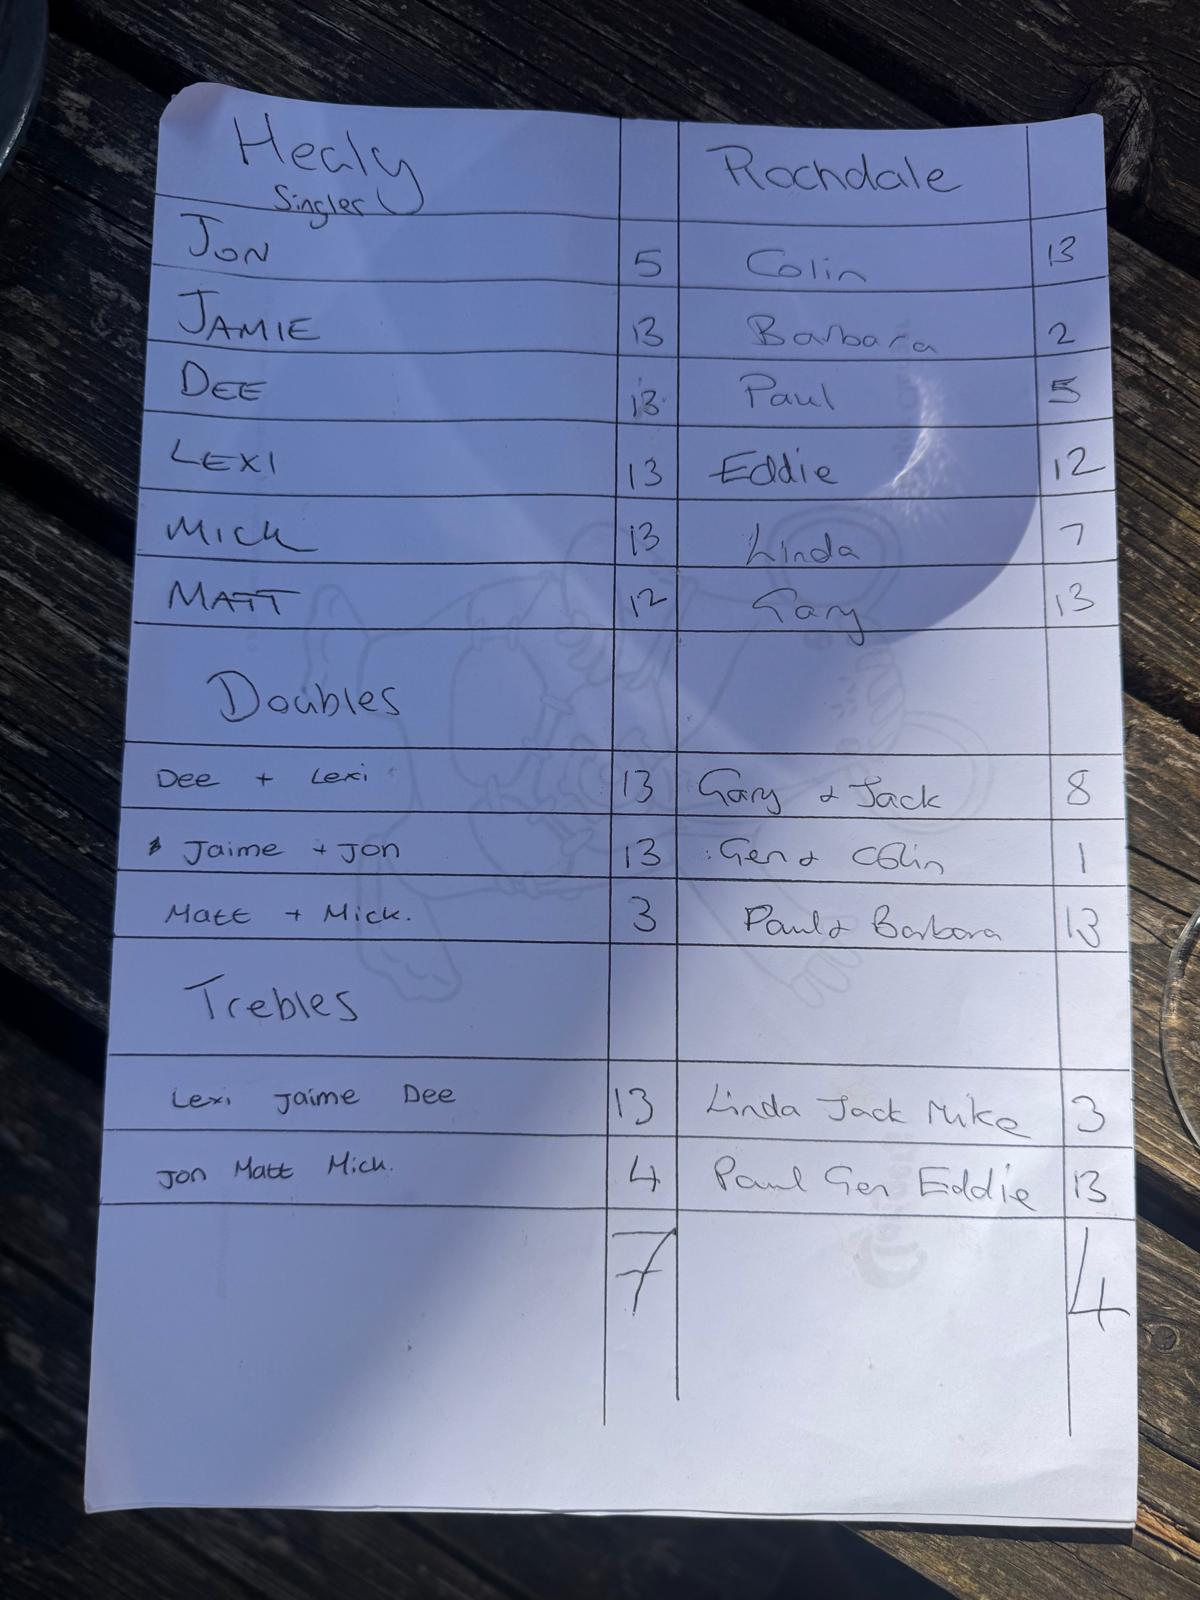 Healy Rochdale
Singles
JON 5 Colin 13
JAMIE 13 Barbara 2
DEE 13 Paul 5
LEXI 13 Eddie 12
Mick 13 Linda 7
MATT 12 Gary 13
Doubles
Dee + Lexi 13 Gary & Jack 8
Jaime + Jon 13 Gen & Colin 1
Matt + Mick. 3 Paul & Barbara 13
Trebles
Lexi Jaime Dee 13 Linda Jack Mike 3
Jon Matt Mick. 4 Paul Gen Eddie 13
7 4